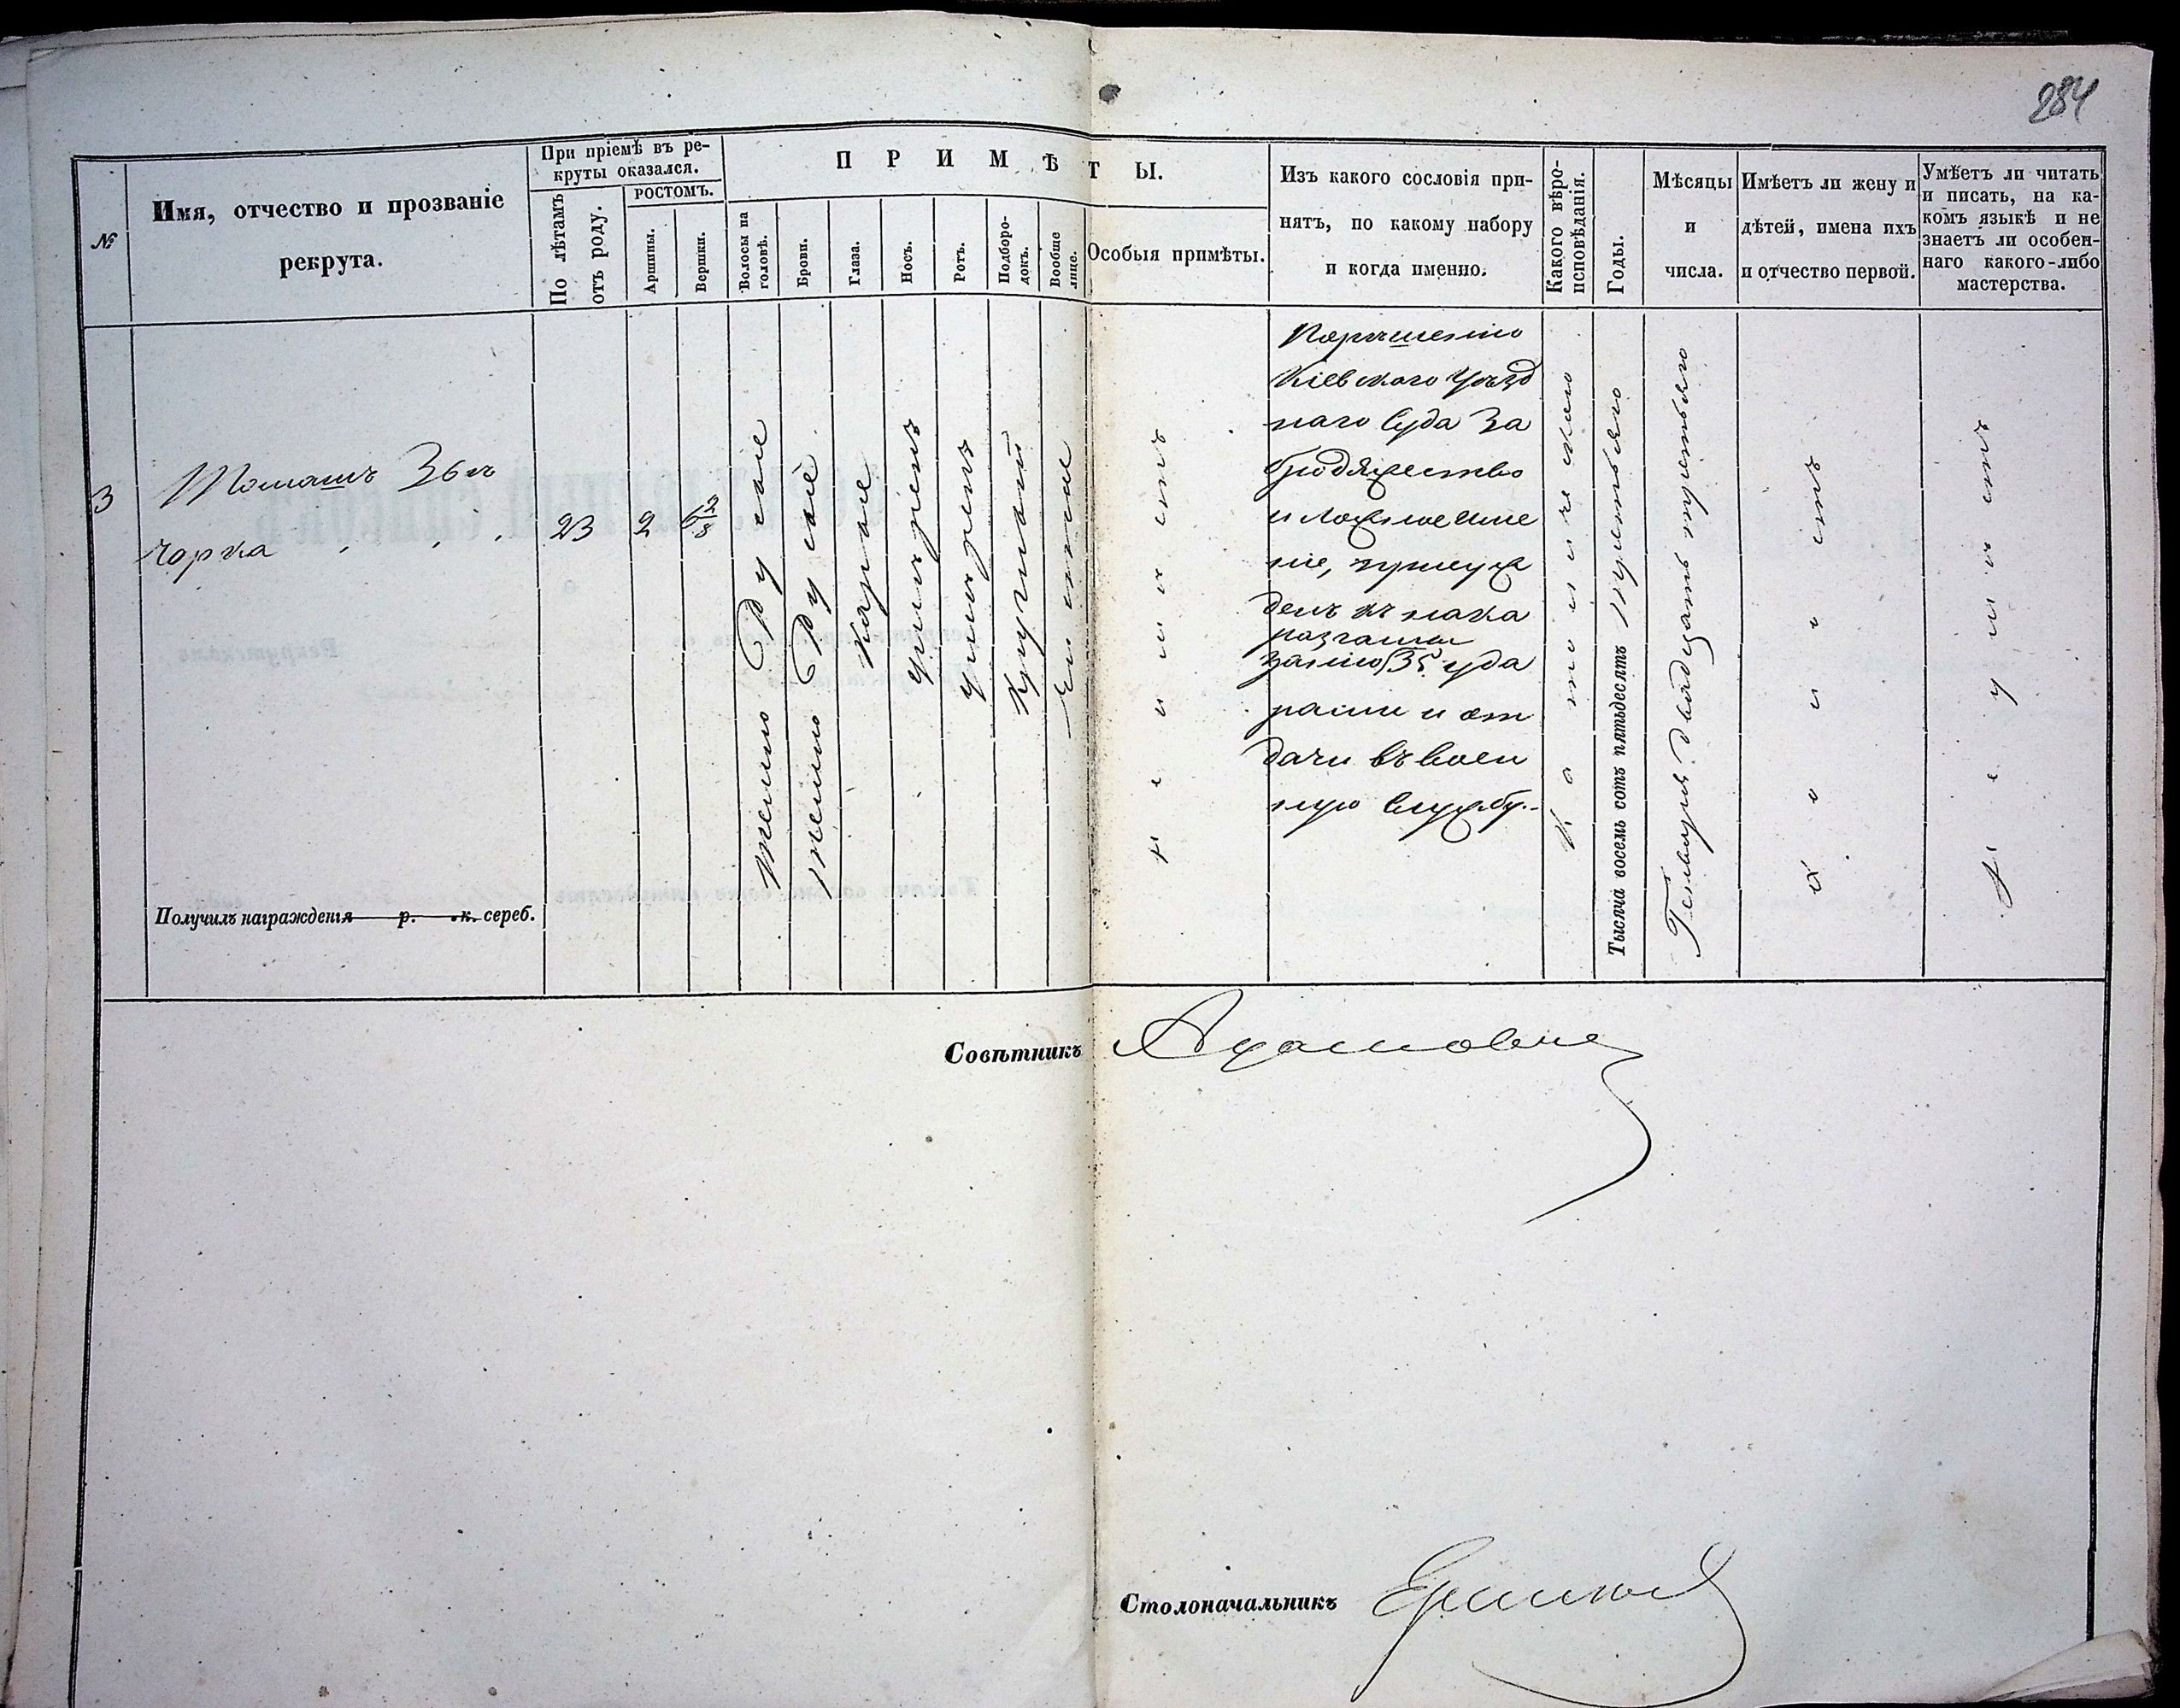 284
№
Имя, отчество и прозваніе
рекрута.
При пріемѣ въ ре-
круты оказался.
По лѣтамъ
отъ роду.
РОСТОМЪ.
Аршины.
Вершки.
ПРИМѢТЫ.
Волосы на
головѣ.
Брови.
Глаза.
Носъ.
Ротъ.
Подборо-
докъ.
Вообще
лице.
Особыя примѣты.
Изъ какого сословія при-
нятъ, по какому набору
и когда именно.
Какого вѣро-
исповѣданія.
Годы.
Мѣсяцы
и
числа.
Имѣетъ ли жену и
дѣтей, имена ихъ
и отчество первой.
Умѣетъ ли читать
и писать, на ка-
комъ языкѣ и не
знаетъ ли особен-
наго какого-либо
мастерства.
3
Томашъ
23
2
6 2/8
темно Русые
темно Русые
Каріе
умѣрен
умѣрен
Круглый
чистое
неимѣетъ
По рѣшенію
Кіевскаго Уѣзд
наго Суда За
бродяжество
и ложное
ніе, присуж
денъ къ нака
занію 35 уда
рами и от
дачи въ воен
ную Службу.
Католическаго
Тысяча восемь сотъ пятьдесятъ третьяго
Генваря двадцать третьяго
Холостъ
Неумѣетъ
Получилъ награжденія р. к. сереб.
Совѣтникъ
Столоначальникъ